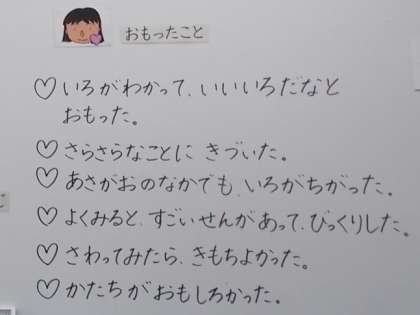 おもったこと
♡いろがわかって、いいいろだなと
おもった。
♡さらさらなことに きづいた。
♡あさがおのなかでも、いろがちがった。
♡よくみると、すごいせんがあって、びっくりした。
♡さわってみたら、きもちよかった。
♡かたちがおもしろかった。